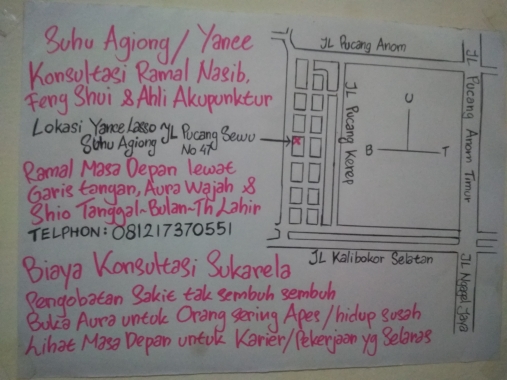 Suhu Agiong / Yanee
Konsultasi Ramal Nasib,
Feng Shui & Ahli Akupunktur
Lokasi Yance Lasso JL Pucang Sewu
Suhu Agiong No 47
Ramal Masa Depan lewat
Garis tangan, Aura Wajah &
Shio Tanggal-Bulan-Th Lahir
TELPHON: 081217370551
Biaya Konsultasi Sukarela
Pengobatan Sakit tak sembuh sembuh
Buka Aura untuk Orang sering Apes/hidup susah
Lihat Masa Depan untuk Karier/Pekerjaan yg Selaras
JL Pucang Anom
JL Pucang Kerep
JL Pucang Anom Timur
U
B T
X
JL Kalibokor Selatan
JL Ngagel Jaya